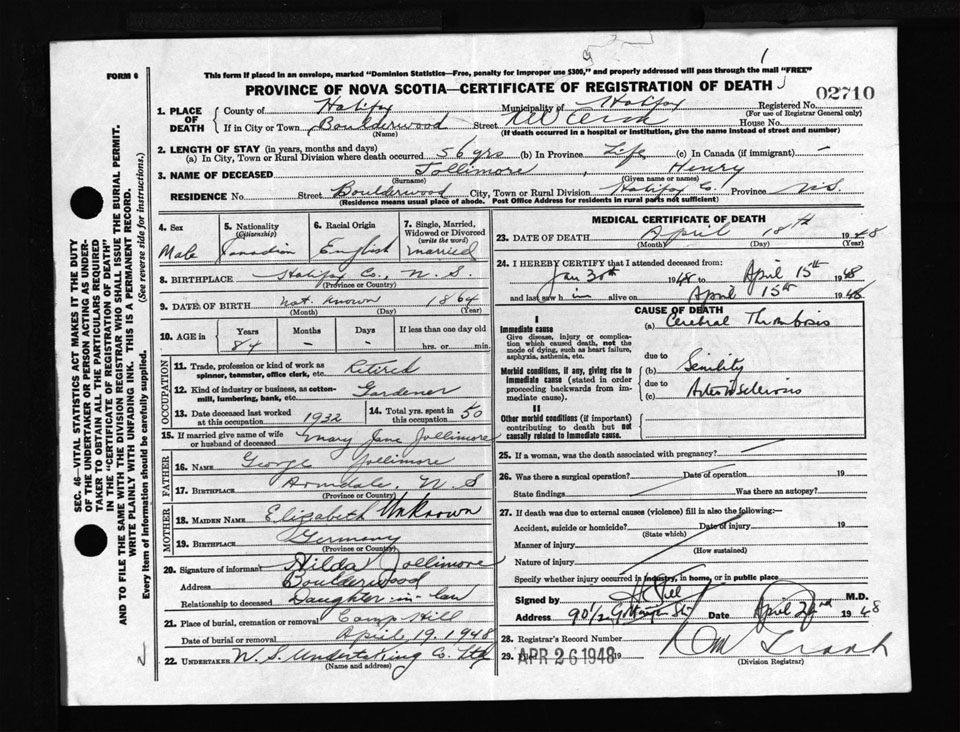 FORM 6
This form if placed in an envelope, marked "Dominion Statistics—Free, penalty for improper use $300," and properly addressed will pass through the mail "FREE"
PROVINCE OF NOVA SCOTIA—CERTIFICATE OF REGISTRATION OF DEATH
02710
1. PLACE OF DEATH
County of Halifax Municipality of Halifax Registered No.
(For use of Registrar General only)
If in City or Town Boulderwood Street House No.
(Name) (If death occurred in a hospital or institution, give the name instead of street and number)
2. LENGTH OF STAY (in years, months and days)
(a) In City, Town or Rural Division where death occurred 56 yrs (b) In Province Life (c) In Canada (if immigrant) —
3. NAME OF DECEASED Jollimore, Henry
(Surname) (Given name or names)
RESIDENCE No. Street Boulderwood City, Town or Rural Division Halifax Co. Province N.S.
(Residence means usual place of abode. Post Office Address for residents in rural parts not sufficient)
4. Sex
Male
5. Nationality (Citizenship)
Canadian
6. Racial Origin
English
7. Single, Married, Widowed or Divorced (write the word)
married
8. BIRTHPLACE Halifax Co., N. S.
(Province or Country)
9. DATE OF BIRTH not known 1864
(Month) (Day) (Year)
10. AGE in Years Months Days If less than one day old
84 — — hrs. or min.
OCCUPATION
11. Trade, profession or kind of work as spinner, teamster, office clerk, etc. Retired
12. Kind of industry or business, as cotton-mill, lumbering, bank, etc. Gardener
13. Date deceased last worked at this occupation 1932
14. Total yrs. spent in this occupation 50
15. If married give name of wife or husband of deceased Mary Jane Jollimore
FATHER
16. NAME George Jollimore
17. BIRTHPLACE Armdale, N. S
(Province or Country)
MOTHER
18. MAIDEN NAME Elizabeth Unknown
19. BIRTHPLACE Germany
(Province or Country)
20. Signature of informant Hilda Jollimore
Address Boulderwood
Relationship to deceased Daughter-in-law
21. Place of burial, cremation or removal Camp Hill
Date of burial or removal April 19, 1948
22. UNDERTAKER N. S. Undertaking Co. Ltd
(Name and address)
MEDICAL CERTIFICATE OF DEATH
23. DATE OF DEATH April 18th 1948
(Month) (Day) (Year)
24. I HEREBY CERTIFY that I attended deceased from
Jan 30th 1948 to April 15th 1948
and last saw him alive on April 15th 1948
CAUSE OF DEATH
I
Immediate cause (a) Cerebral Thrombosis
Give disease, injury or complication which caused death, not the mode of dying, such as heart failure, asphyxia, asthenia, etc.
due to
Morbid conditions, if any, giving rise to immediate cause (stated in order proceeding backwards from immediate cause).
(b) Senility
due to
(c) Arteriosclerosis
II
Other morbid conditions (if important) contributing to death but not causally related to immediate cause.
25. If a woman, was the death associated with pregnancy?
26. Was there a surgical operation? Date of operation 19
State findings Was there an autopsy?
27. If death was due to external causes (violence) fill in also the following:—
Accident, suicide or homicide? Date of injury 19
(State which)
Manner of injury
(How sustained)
Nature of injury
Specify whether injury occurred in industry, in home, or in public place
Signed by M.D.
Address Date April 1948
28. Registrar's Record Number
29. APR 26 1948 19
(Division Registrar)
SEC. 46—VITAL STATISTICS ACT MAKES IT THE DUTY
OF THE UNDERTAKER OR PERSON ACTING AS UNDER-
TAKER TO OBTAIN ALL THE PARTICULARS REQUIRED
IN THE "CERTIFICATE OF REGISTRATION OF DEATH"
AND TO FILE THE SAME WITH THE DIVISION REGISTRAR WHO SHALL ISSUE THE BURIAL PERMIT.
WRITE PLAINLY WITH UNFADING INK. THIS IS A PERMANENT RECORD.
Every item of Information should be carefully supplied. (See reverse side for instructions.)